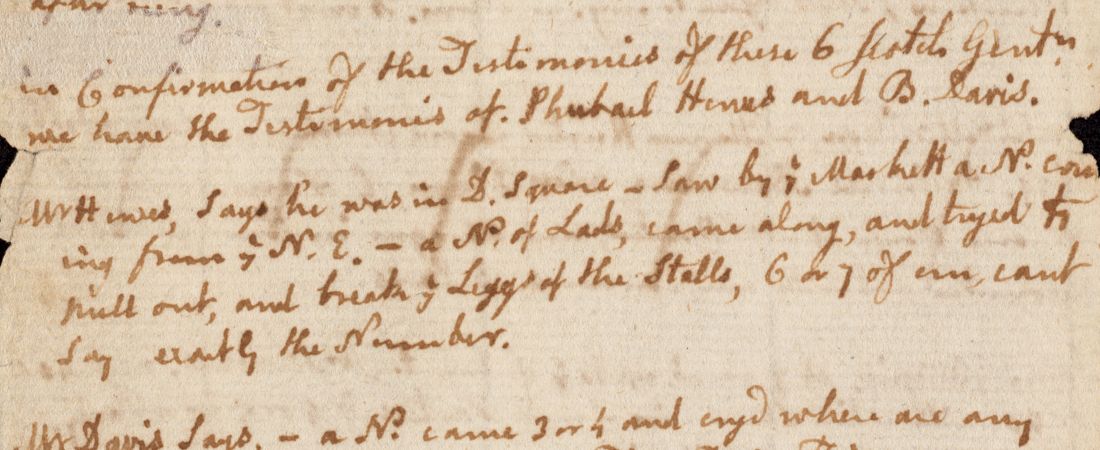 in Confirmation of the Testimonies of these 6 Scotch Gentn.
we have the Testimonis of. Shubael Hewes and B. Davis.
Mr Hewes, Says he was in D. Square – Saw by ye Markett a No. com
ing from ye N. E. – a No. of Lads, came along, and tryed to
pull out, and break ye Leggs of the Stalls, 6 or 7 of em, cant
Say exactly the Number.
Mr Davis Says. – a No. came 3 or 4 and cryd where are any